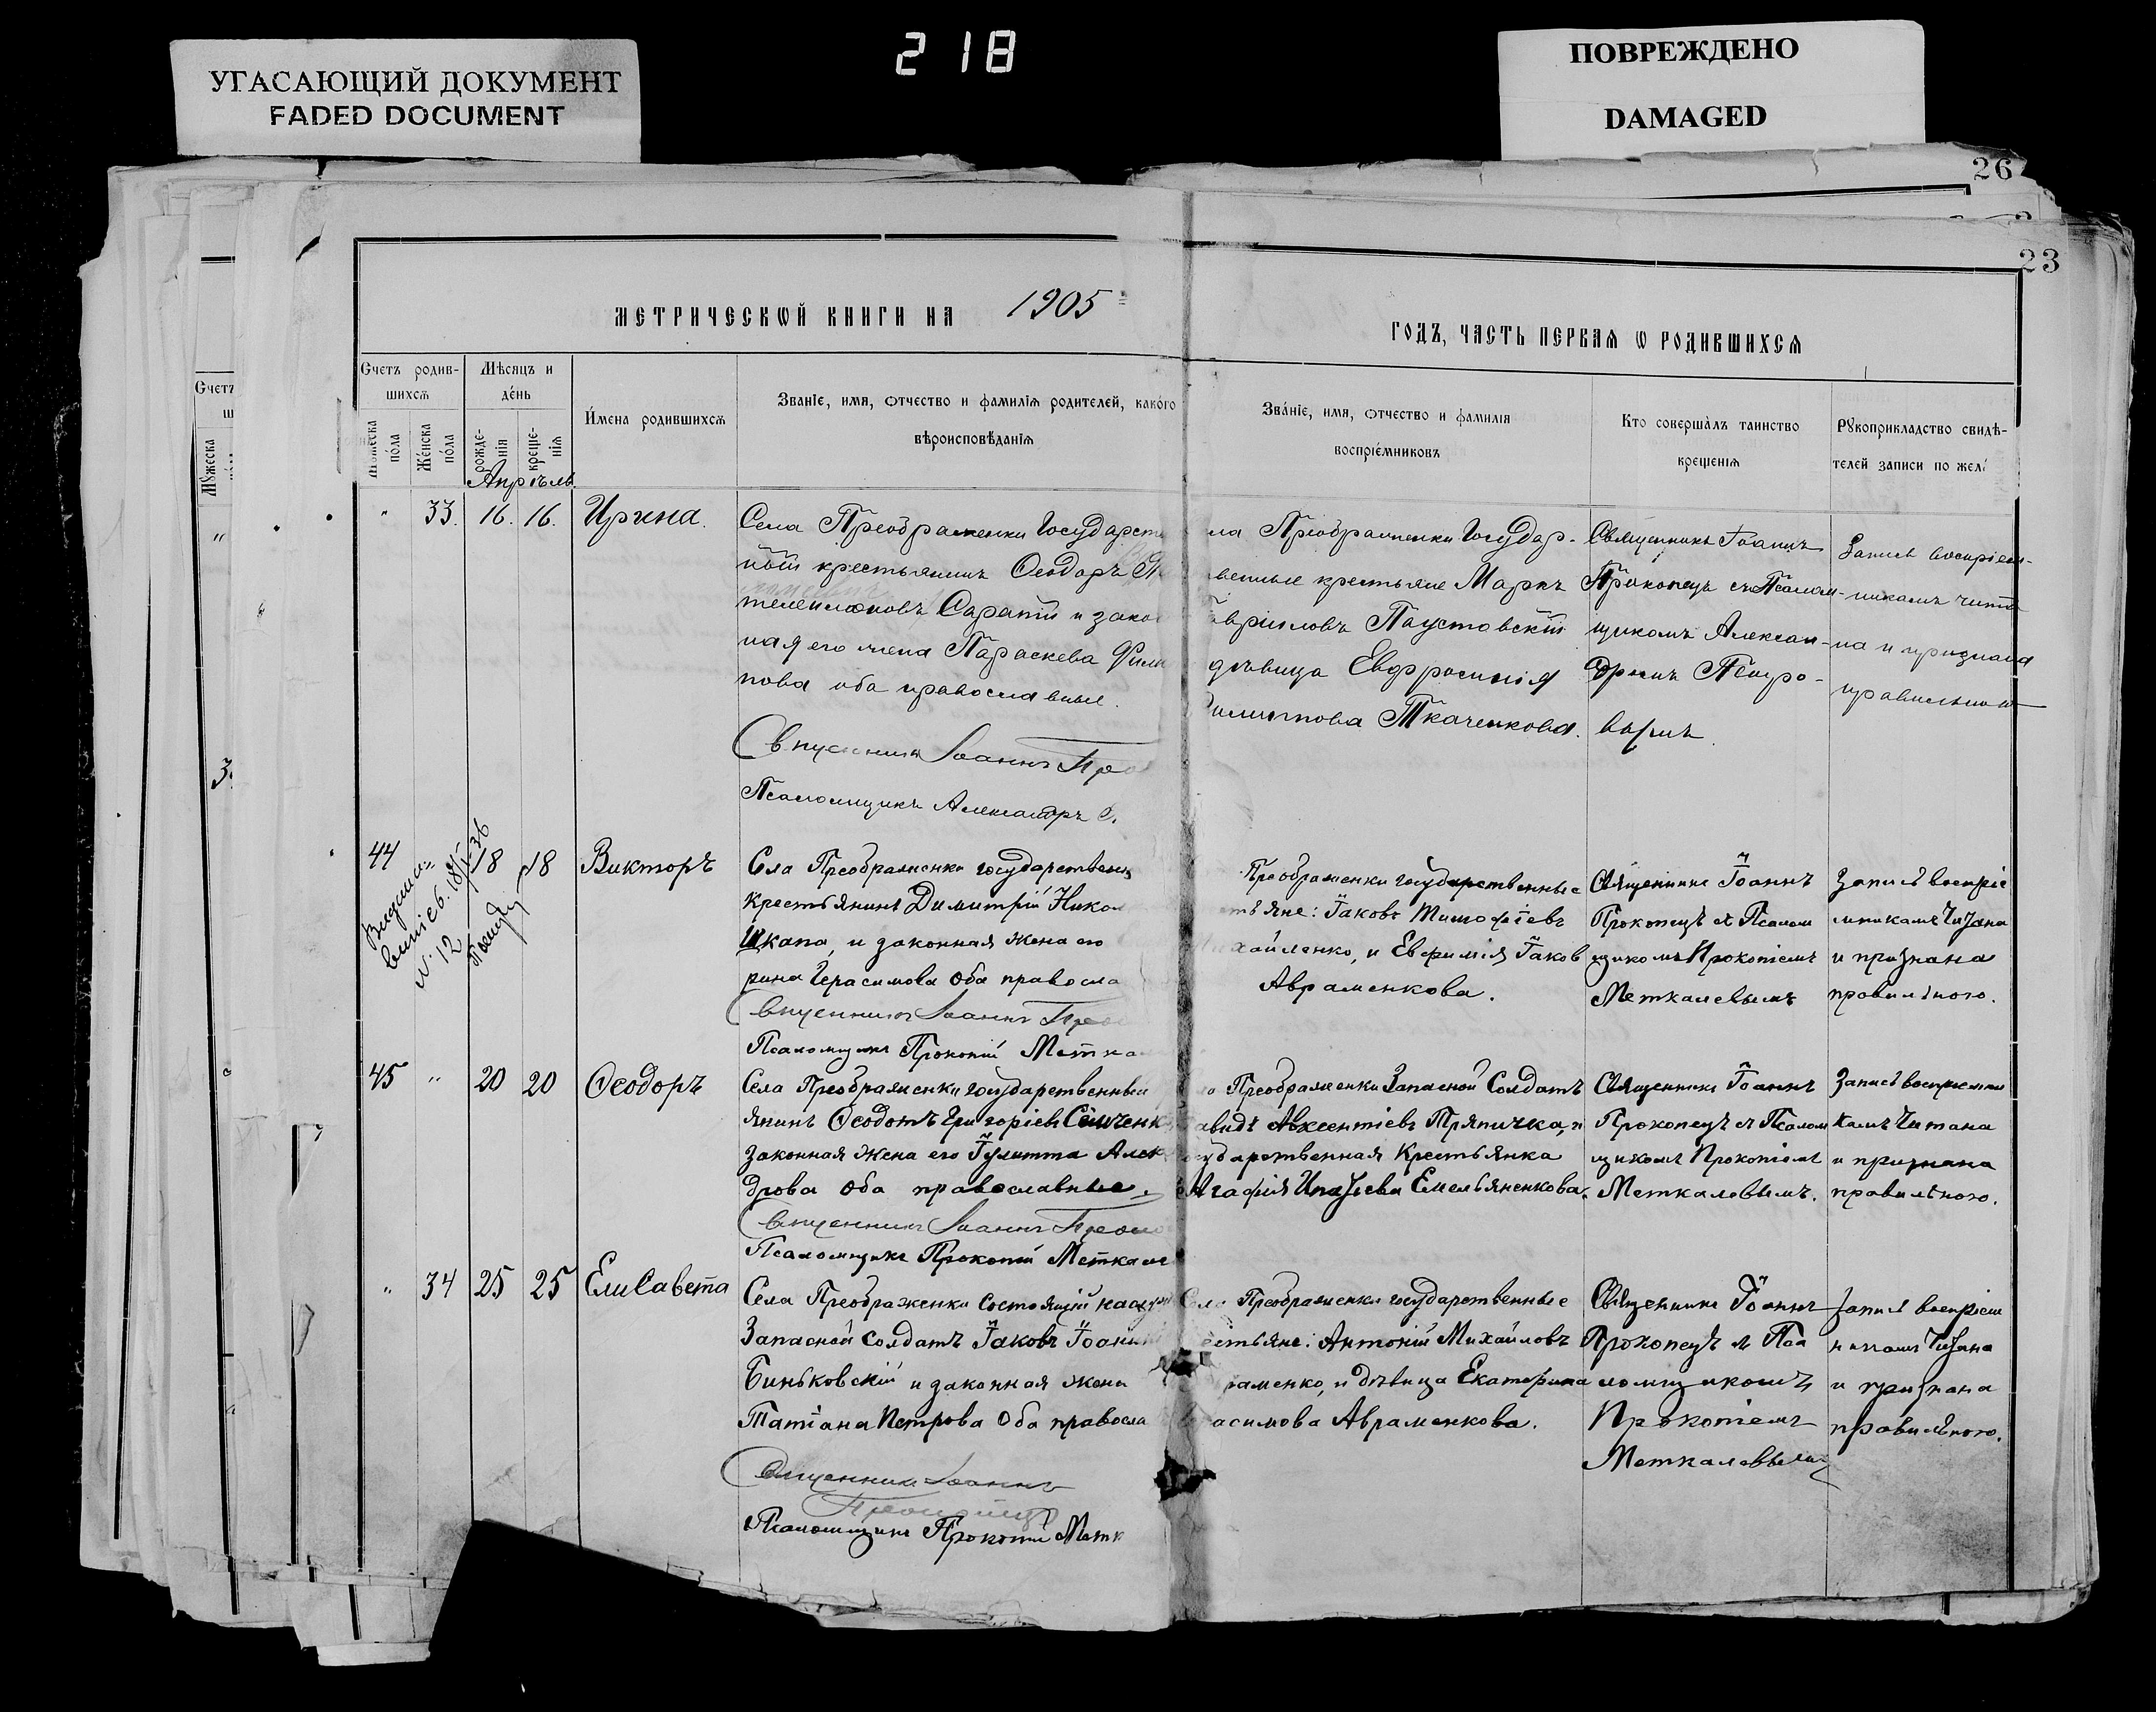 УГАСАЮЩИЙ ДОКУМЕНТ
FADED DOCUMENT
218
ПОВРЕЖДЕНО
DAMAGED
26
23
МЕТРИЧЕСКѠЙ КНИГИ НА 1905
ГОДЪ, ЧАСТЬ ПЕРВАѦ Ѡ РОДИВШИХСѦ
Счетъ
Мꙋжеска
Счетъ родив-
шихсѧ
Мꙋжеска
пола
Женска
пола
Мѣсяцъ и
день
рожде-
нія
креще-
нія
Имена родившихсѧ
Званіе, имя, отчество и фамилія родителей, какого
вѣроисповѣданія
Званіе, имя, отчество и фамилія
воспріемниковъ
Кто совершалъ таинство
крещенія
Рꙋкоприкладство свидѣ-
телей записи по жел
Апрѣль
" 33. 16. 16. Ирина.
Села Преображенки Государств
ный крестьянинъ Ѳеодоръ
телеимоновъ Сарапій и зако
ная его жена Параскева Фили
пова оба православные.
Священникъ Іоаннъ
Псаломщикъ Александръ
ла Преображенки Государ-
венные крестьяне Маркъ
авріиловъ Паустовскій
дѣвица Евфросинія
илиппова Ткаченкова.
Священникъ Іоаннъ
Прокопецъ съ Псалом-
щикомъ Алексан-
дромъ Петро-
вымъ.
Запись воспріем-
никамъ чита
на и признана
правильною
44 18 18 Викторъ
N. 12
Села Преображенки государствен
Крестьянинъ Димитрій Никол
Шкапа, и законная жена его
рина Герасимова Оба правосла
Священникъ Іоаннъ
Псаломщикъ ПрокопійМетка
Преображенки государственные
стьяне: Іаковъ Тимофіевъ
хайленко, и Евфимія Іаков
Авраменкова.
Священникъ Іоаннъ
Прокопецъ съ Псалом
щикомъ Прокопіемъ
Меткалевымъ
Запись воспріе
мникамъ Читана
и признана
правильною.
45 " 20 20 Ѳеодоръ
Села Преображенки государственный
янинъ Ѳеодотъ Григоріевъ Сенченк
законная жена его Іулитта Алек
дрова Оба православные.
Священникъ Іоаннъ
Псаломщикъ Прокопій Меткале
Преображенки Запасной Солдатъ
авидъ Авксентіевъ Тряпичка, и
сударственная Крестьянка
Агафія Емельяненкова.
Священникъ Іоаннъ
Прокопецъ съ Псалом
щикомъ Прокопіемъ
Меткалевымъ.
Запись воспріемни
камъ Читана
и признана
правильною.
" 34 25 25 Елисавета
Села Преображенки Состоящій
Запасной Солдатъ Іаковъ Іоанн
Биньковскій и законная жена
Татіана Петрова Оба правосла
Священникъ Іоаннъ
Прокопецъ
Псаломщикъ Прокопій Метк
Села Преображенки государственные
естьяне: Антоній Михайловъ
раменко, и дѣвица Екатерина
асимова Авраменкова.
Священникъ Іоаннъ
Прокопецъ съ Пса
ломщикомъ
Прокопіемъ
Меткалевымъ
Запись воспріем
никамъ Читана
и признана
правильною.